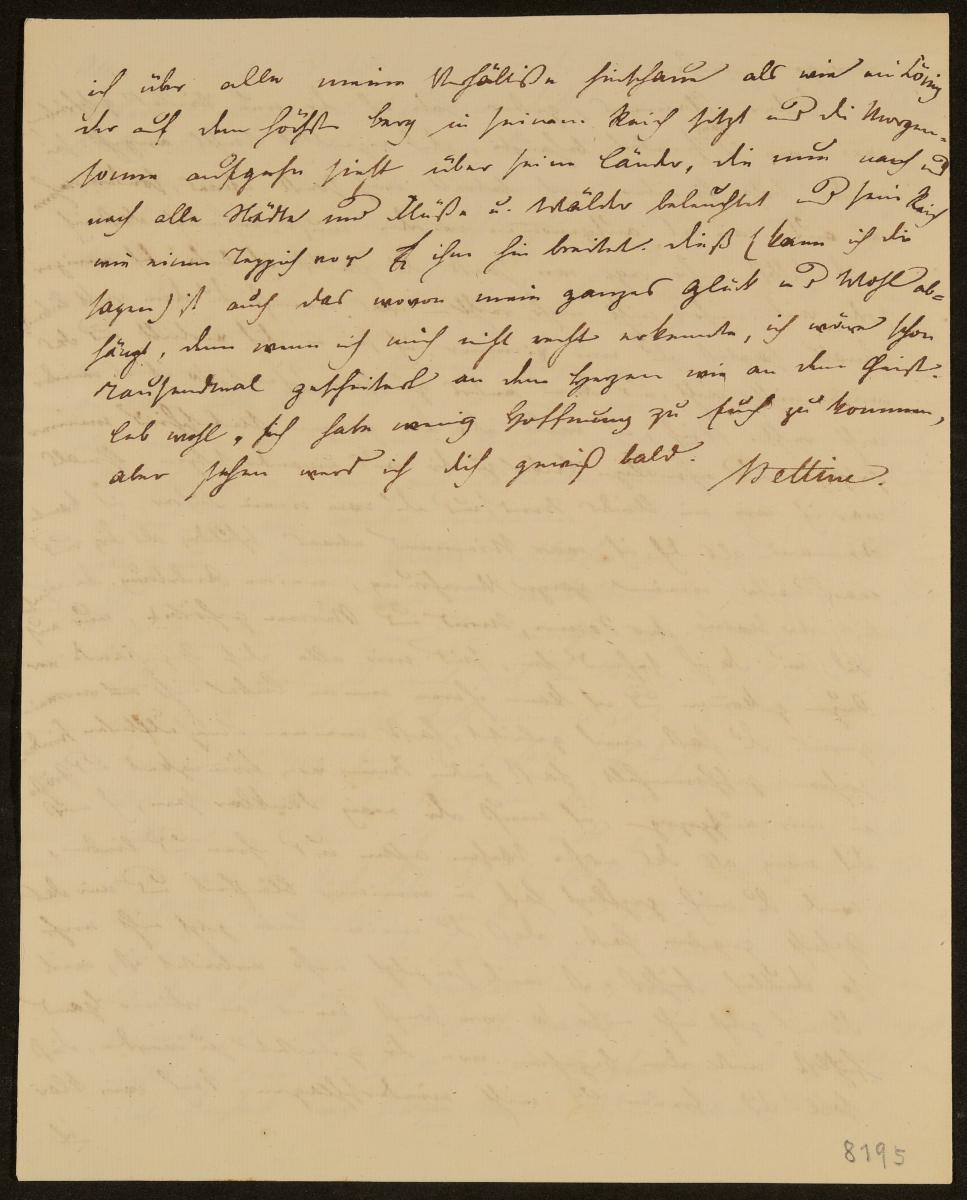 ich über alle meine Verhältiße hinschaue als wie ein König
der auf dem höchste Berg in seinem Reich sitzt und die Morgen-
sonne aufgehn sieht über seine Länder, die nun nach und
nach alle Städte und Flüße u. Wälder beleuchtet und sein Reich
wie einen Teppich vor ihm hin breitet. dieß (kann ich dir
sagen) ist auch das wovon mein ganzes Glück und Wohl ab-
hängt, denn wenn ich mich nicht recht erkennte, ich wäre schon
Tausendmal gescheitert an dem Herzen wie an dem Geist.
leb wohl, ich habe wenig Hoffnung zu Euch zu kommen,
aber sehen werd ich dich gewiß bald. Bettine.
8195